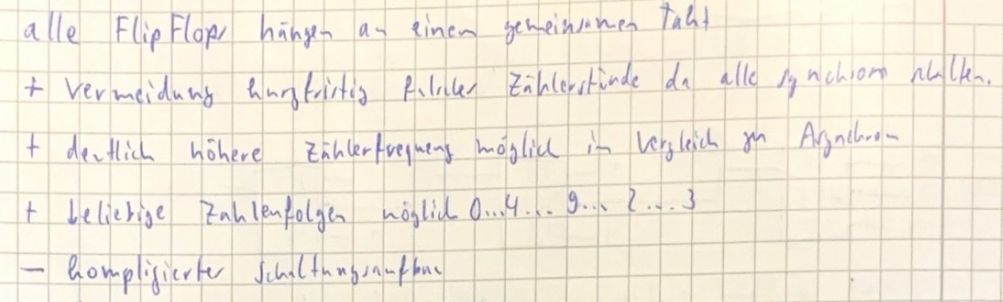 alle FlipFlops hängen an einem gemeinsamen Takt
+ Vermeidung kurzfristig falscher Zählerstände da alle synchron schalten.
+ deutlich höhere Zählerfrequenz möglich im Vergleich zu Asynchron
+ beliebige Zahlenfolgen möglich 0...4...9...2...3
- komplizierter Schaltungsaufbau